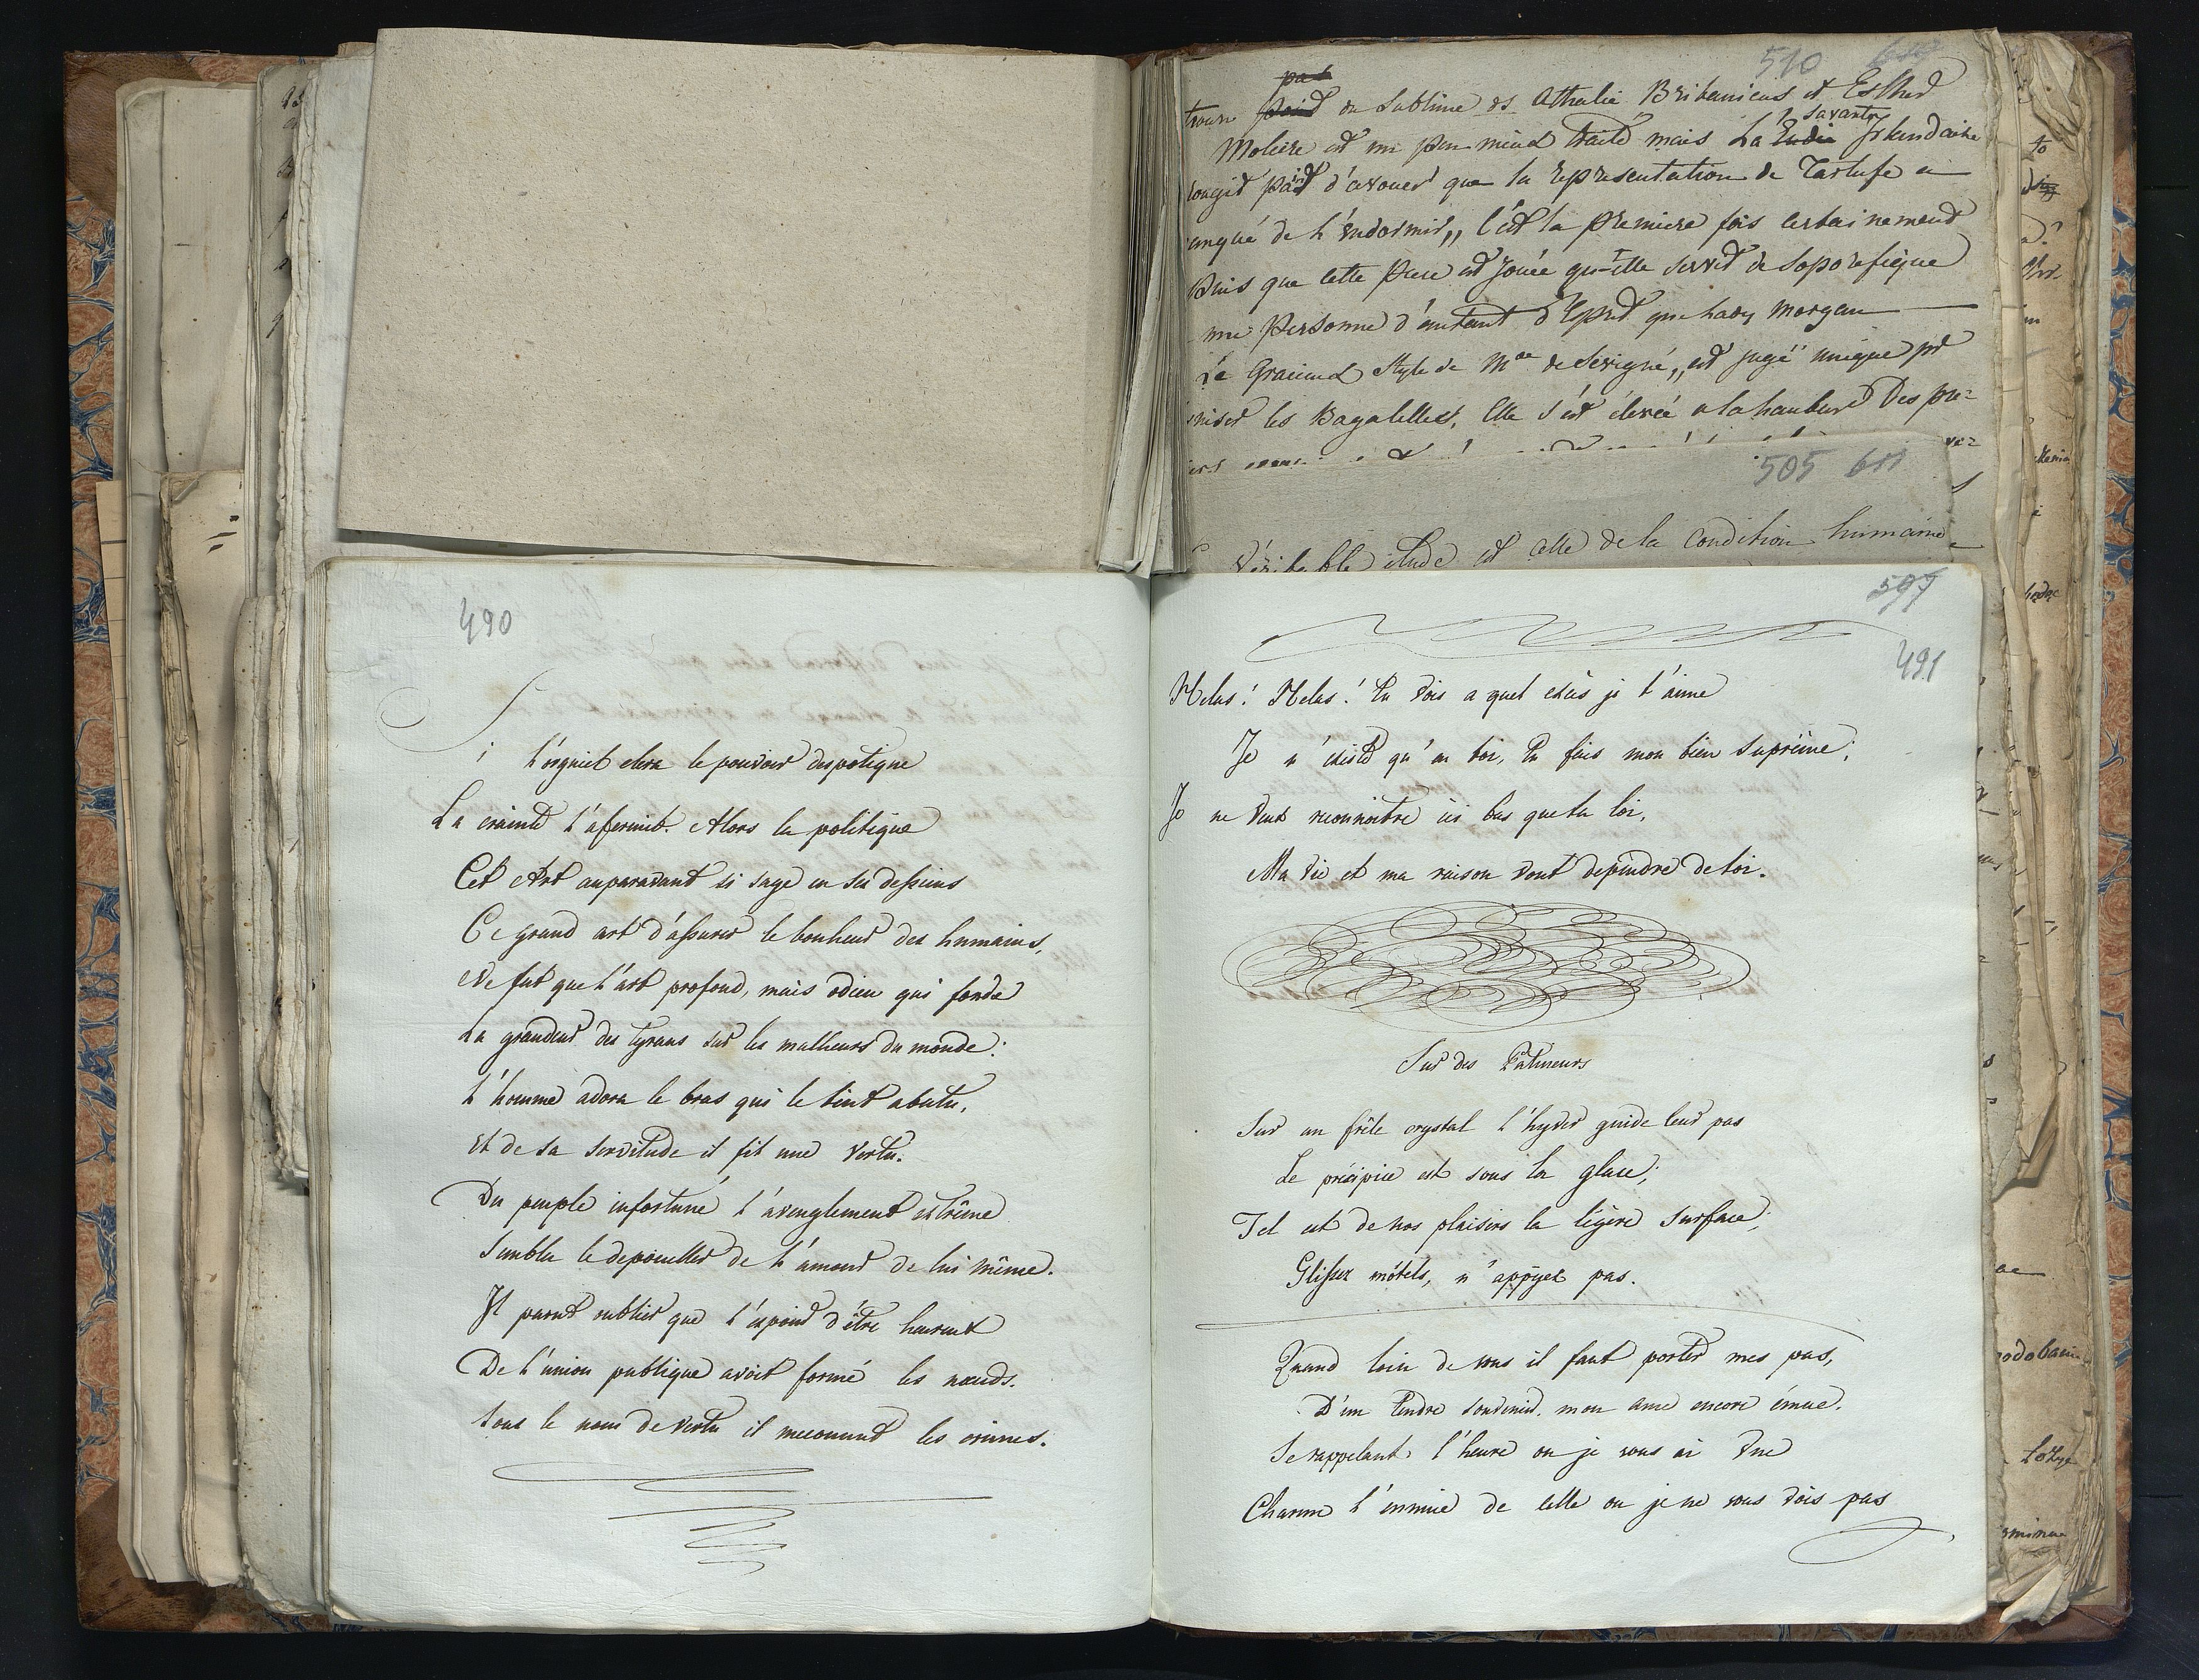 510
pas
trouve point du Sublime ds Athalie Britanicus et Esther
savante
Moliere est un peu mieux traité mais La Ladi Irlandaise
rougit point d'avouer que la representation de Tartufe a
anqué de l'endormir,, C'est la premiere fois certainement
Puis que cette Piece est Jouée qu'elle servit de soporefique
une Personne d'autant d'Esprit que Lady Morgan
Le Gracieux Style de Mde de Sevigné,, est jugé" unique pr
niser les Bagatelles, Elle s'est elevée a la hauteur Des pre=
505 611
Véritable étude est celle de la condition humaine
490
Si l'orgueil eleva le pouvoir despotique
La crainte l'afermit. Alors la politique
Cet Art auparavant si sage en ses desseins
Ce grand art d'assurer le bonheur des humains,
Ne fut que l'art profond, mais odieu qui fonde
La grandeur des tyrans sur les malheurs du monde:
L'homme adora le bras qui le tint abatu,
et de sa servitude il fit une vertu.
Du peuple infortuné l'aveuglement extrême
Sembla le depouiller de l'amour de lui même.
Il parut oublier que l'espoir d'être heureux
De l'union publique avoit formé les nœuds.
Sous le nom de vertu il meconnut les crimes.
597
491
Helas! Helas! tu vois a quel excès je t'aime
Je n'existe qu'en toi, tu fais mon bien suprême;
Je ne veux reconnoitre ici bas que ta loi,
Ma vie et ma raison vont dependre de toi.
Sur des Patineurs
Sur un frêle crystal l'hyver guide leur pas
Le précipice est sous la glace;
Tel est de nos plaisirs la légère surface;
Glissez mótels, n'appÿez pas.
Quand loin de vous il faut porter mes pas,
D'un tendre souvenir, mon ame encore émue.
Se rappelant l'heure ou je vous ai vue
Charme l'ennuie de celle ou je ne vous vois pas